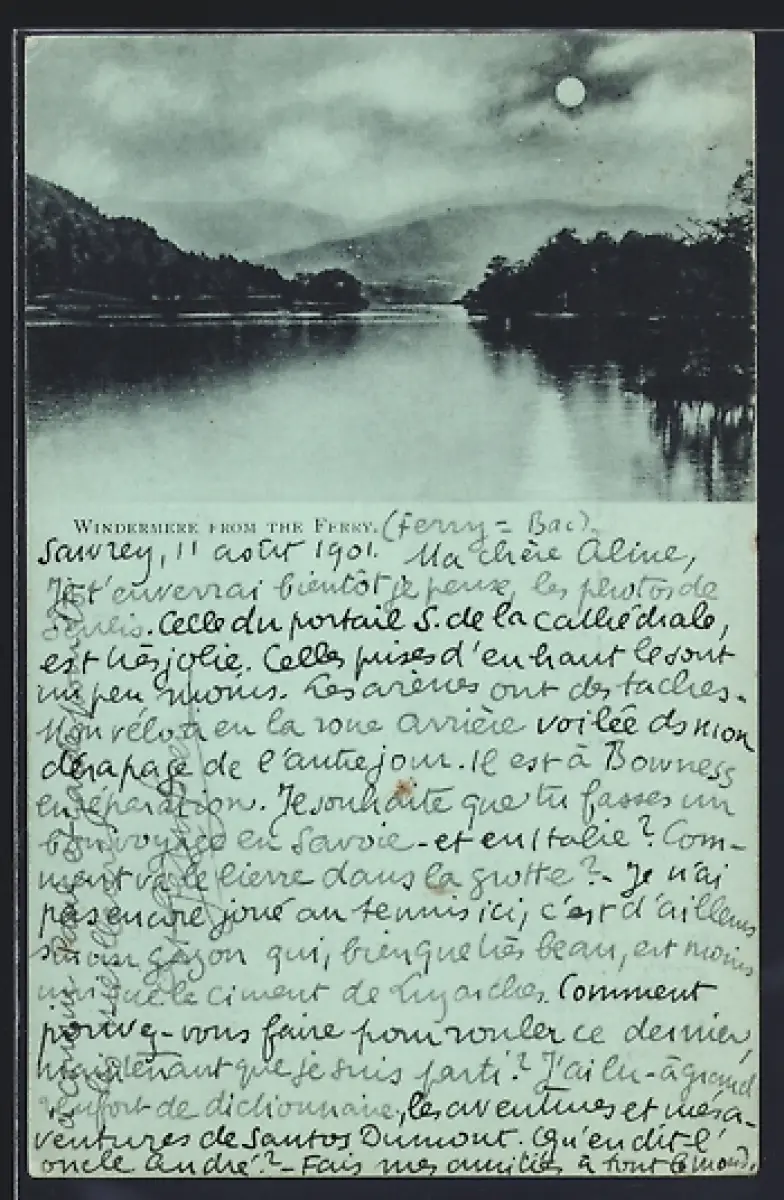 WINDERMERE FROM THE FERRY. (Ferry = Bac).
Sawrey, 11 août 1901. Ma chère Aline,
Je t'enverrai bientôt je pense, les photos de
Senlis. Celle du portail S. de la cathédrale,
est très jolie. Celles prises d'en haut le sont
un peu moins. Les arènes ont des taches.
Mon vélo a eu la roue arrière voilée ds mon
dérapage de l'autre jour. Il est à Bowness
en réparation. Je souhaite que tu fasses un
bon voyage en Savoie - et en Italie? Com-
ment va le lierre dans la grotte? - Je n'ai
pas encore joué au tennis ici, c'est d'ailleurs
sur un gazon qui, bien que très beau, est moins
uni que le ciment de Luzarches. Comment
pouvez-vous faire pour rouler ce dernier,
maintenant que je suis parti? J'ai lu - à grand
renfort de dictionnaire, les aventures et mésa-
ventures de Santos Dumont. Qu'en dit l'
oncle André? - Fais mes amitiés à tout le monde.